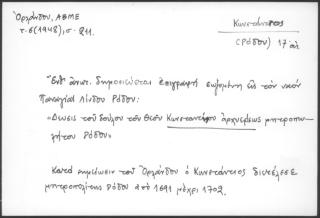 Ὀρλάνδου, ΑΒΜΕ
τ. 6 (1948), σ. 211.
Κωνστάντιος
(Ρόδου) 17 αἰ.
"Ἐνθ' ἀνωτ. δημοσιεύεται ἐπιγραφὴ σωζομένη εἰς τὸν ναὸν
Παναγίας Λίνδου Ρόδου:
"Δέησις τοῦ δούλου τοῦ Θεοῦ Κωνσταντίου ἀρχιερέως μητροπο-
λίτου Ρόδου"
Κατὰ σημείωσιν τοῦ Ὀρλάνδου ὁ Κωνστάντιος διετέλεσε
μητροπολίτης Ρόδου ἀπὸ 1691 μέχρι 1702.